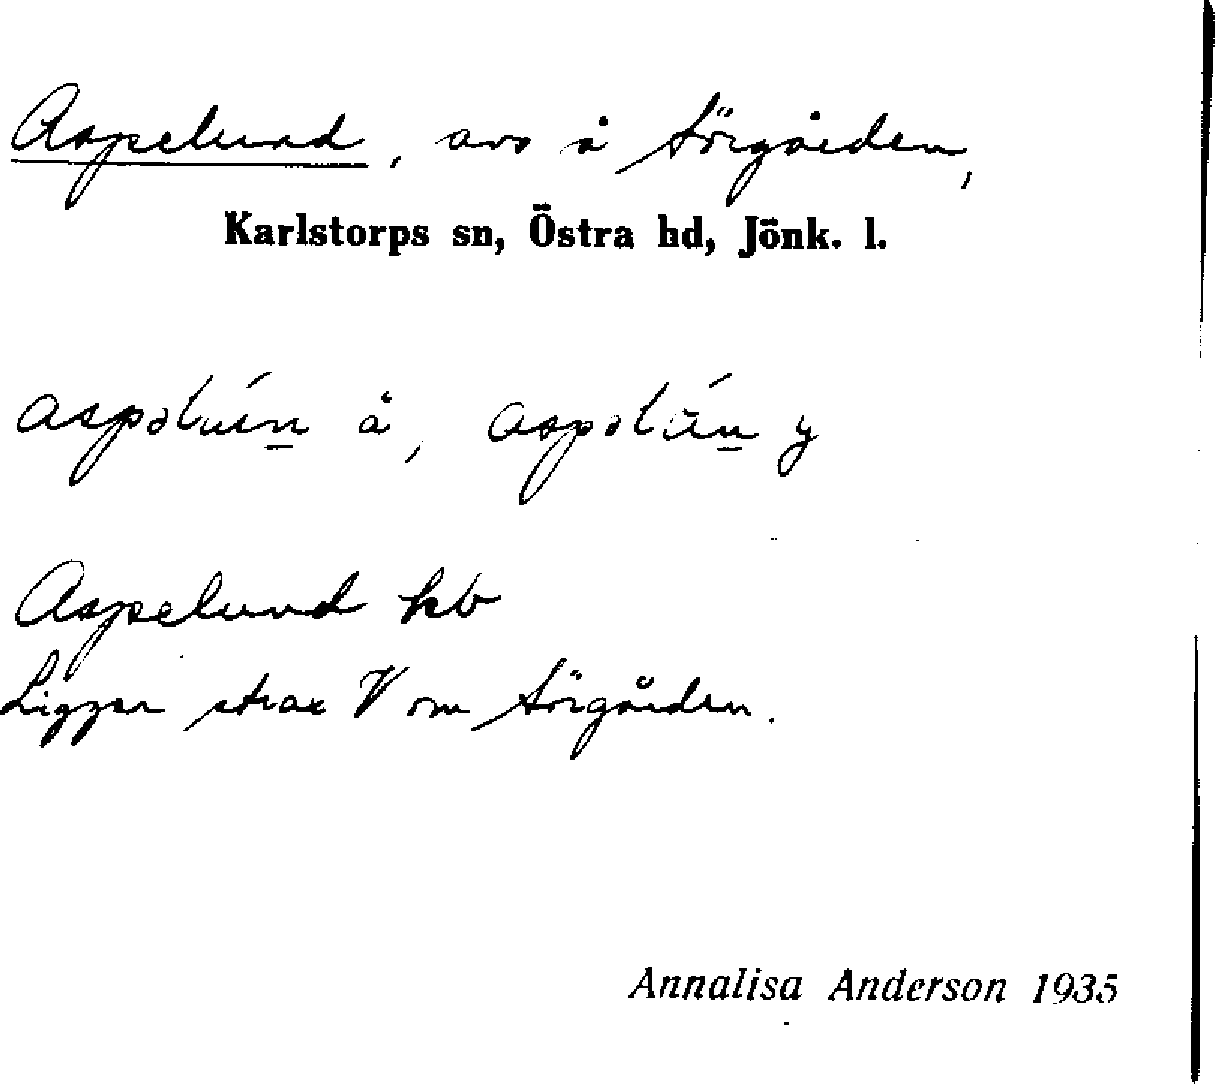 Aspelund, avs å Sörgården,
Karlstorps sn, Östra hd, Jönk. l.
å, y
Aspelund kb
Ligger strax V om Sörgården.
Annalisa Anderson 1935